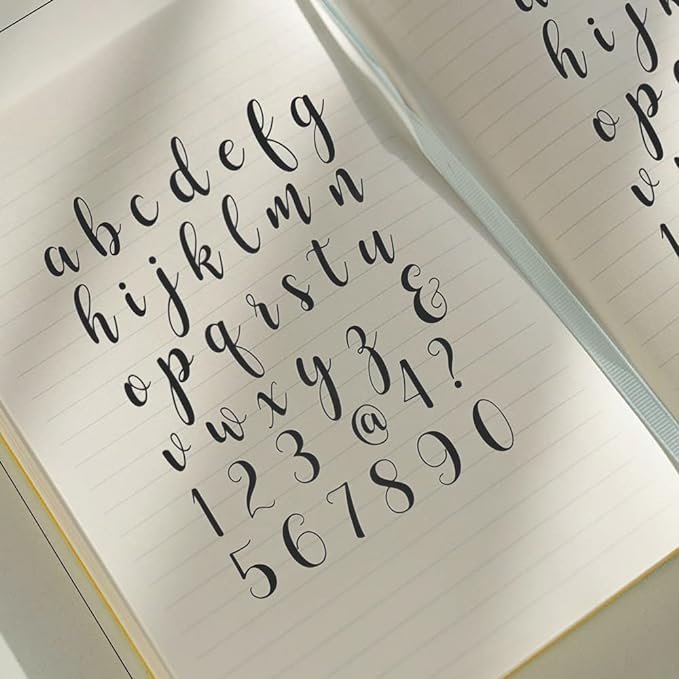 abcdefg
hijklmn
opqrstu
vwxyz&
123@4?
567890
hij
op
v
1